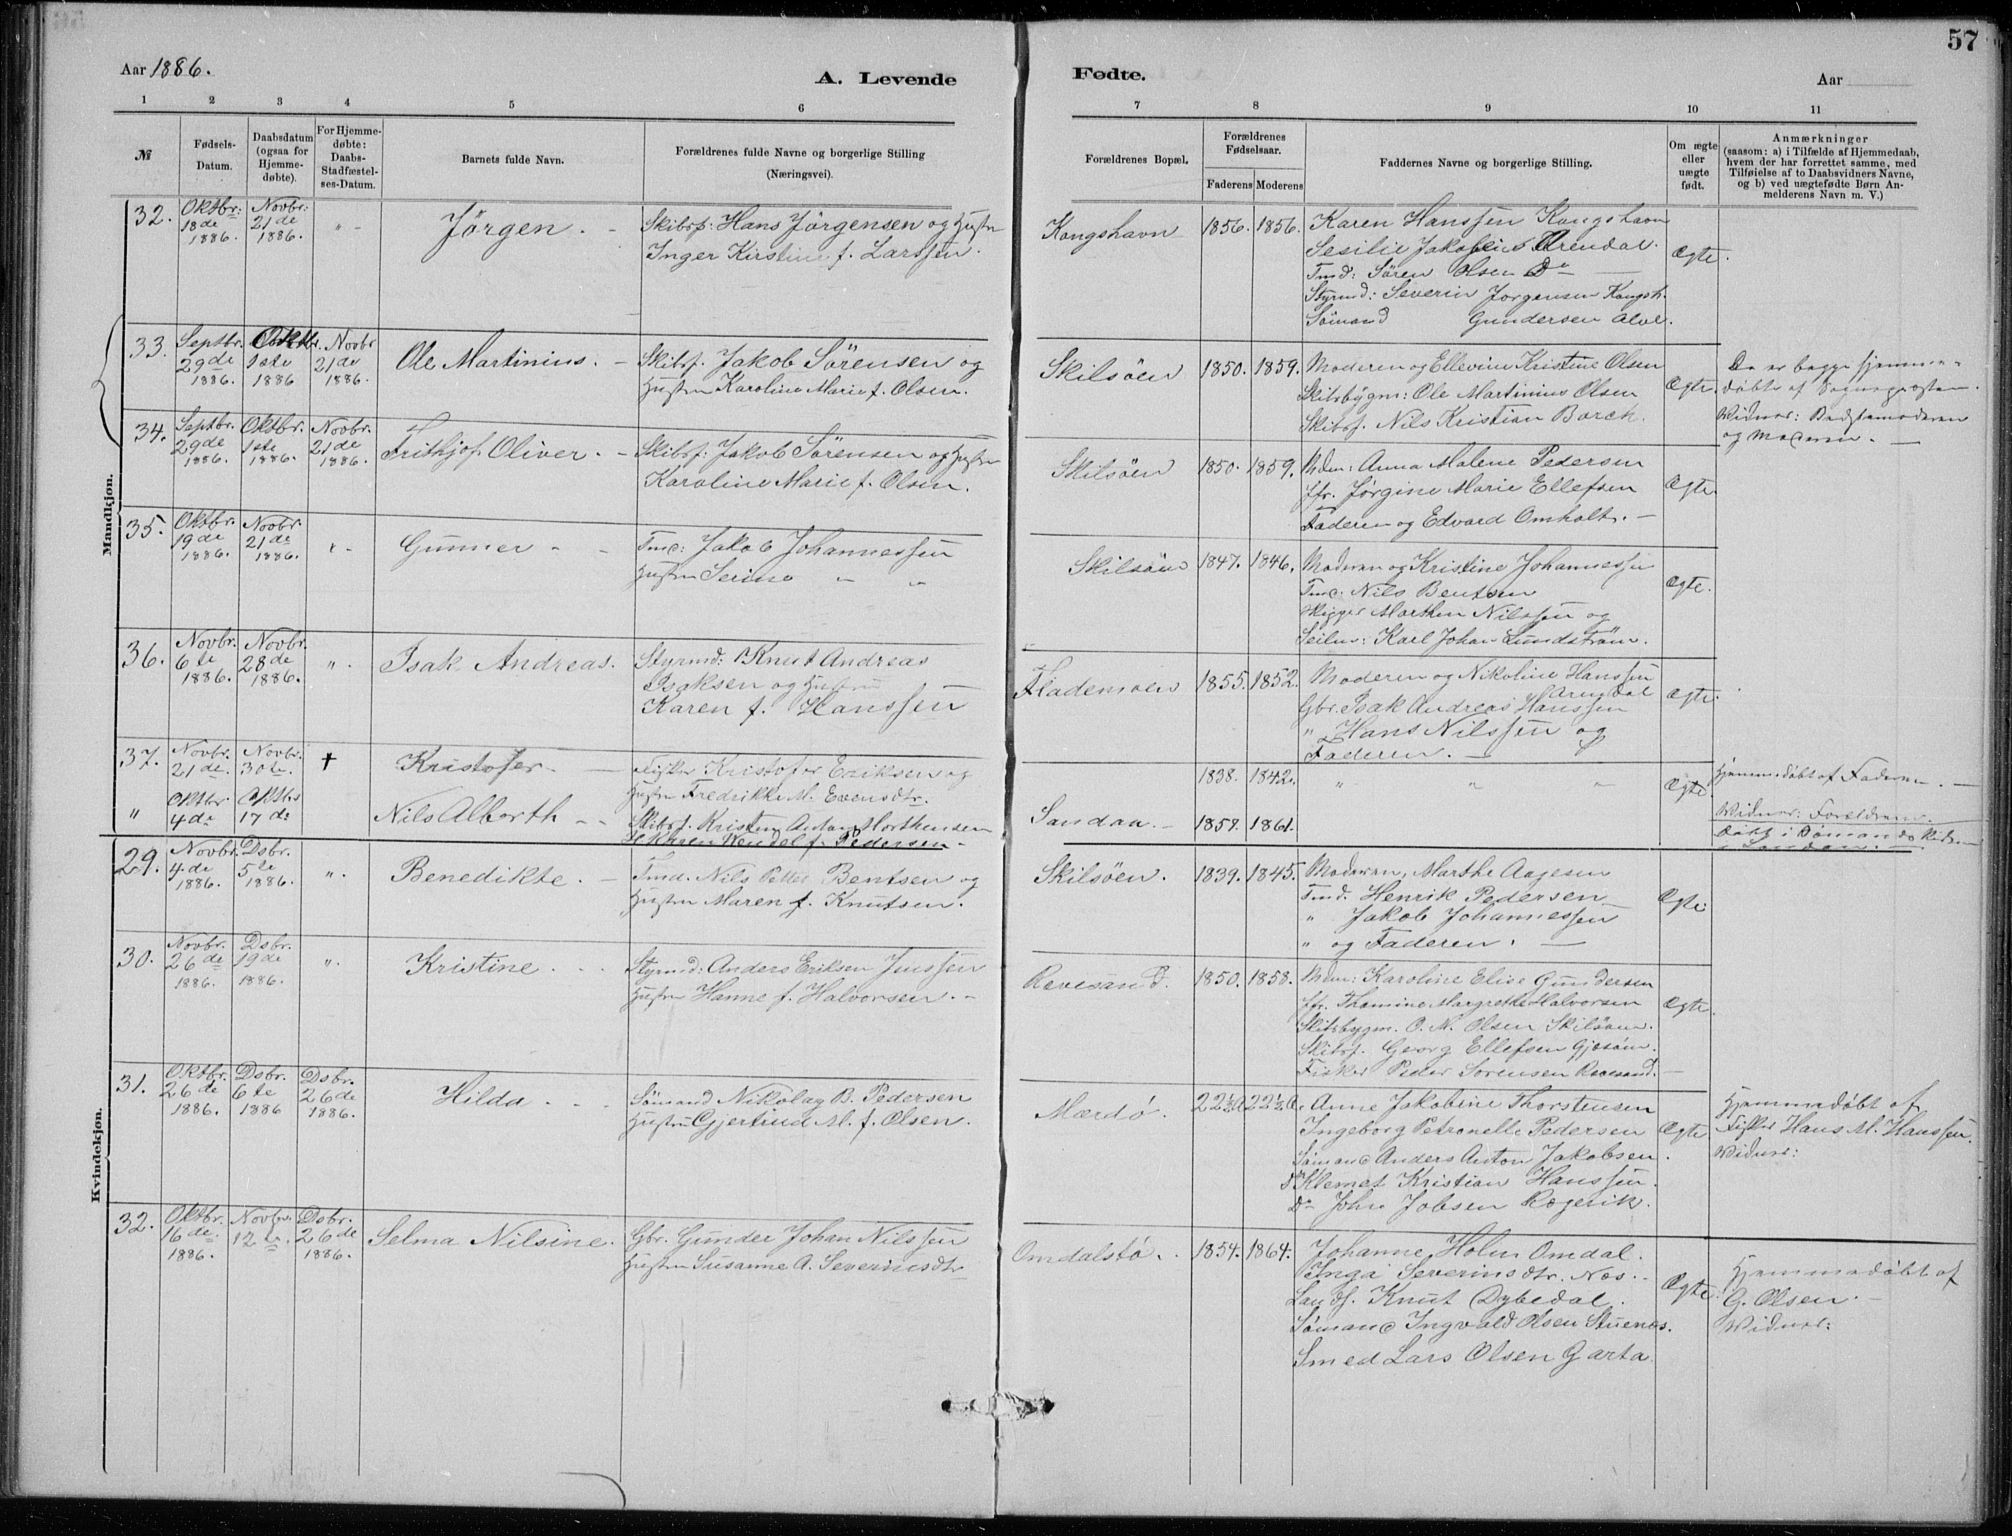 57
Aar 1886.
A. Levende
Fødte.
Aar
1 2 3 4 5 6 7 8 9 10 11
№
Fødsels-
Datum.
Daabsdatum
(ogsaa for
Hjemme-
døbte).
For Hjemme-
døbte:
Daabs-
Stadfæstel-
ses-Datum.
Barnets fulde Navn.
Forældrenes fulde Navne og borgerlige Stilling
(Næringsvei).
Forældrenes Bopæl.
Forældrenes
Fødselsaar.
Faderens Moderens
Faddernes Navne og borgerlige Stilling.
Om ægte
eller
uægte
født.
Anmærkninger
(saasom: a) i Tilfælde af Hjemmedaab,
hvem der har forrettet samme, med
Tilføielse af to Daabsvidners Navne,
og b) ved uægtefødte Børn An-
melderens Navn m. V.)
Mandkjøn.
32.
Oktbr.
18de
1886.
Novbr.
21de
1886.
" -
Jörgen. -
Skibsf: Hans Jörgensen og Hustru
Inger Kirstine f. Larssen.
Kongshavn
1856. 1856.
Karen Hanssen Kongshavn
Sesilie Jakobsen Arendal.
Tmd: Sören Olsen Do
Styrmd: Severin Jorgensen Kongsh.
Sömand Gundersen Alve.
Ægte.
33.
Septbr.
29de
1886.
Oktbr.
1ste
1886
Novbr
21de
1886.
Ole Martinius. -
Skibsf. Jakob Sörensen og
Hustru Karoline Marie f. Olsen.
Skilsöen
1850. 1859.
Moderen og Ellevine Kristine Olsen
Skibsbygm: Ole Martinius Olsen
Skibsf. Nils Kristian Borch.
Ægte.
De er begge hjemme-
døbte af Sognepresten.
Widner: Bedstemoderen
og Moderen. -
34.
Septbr.
29de
1886.
Oktbr.
1ste
1886.
Novbr.
21de
1886.
Frithjof Oliver. -
Skibsf: Jakob Sörensen og Hustru
Karoline Marie f. Olsen.
Skilsöen
1850. 1859.
Mdm: Anna Malene Pedersen
Jfr. Jørgine Marie Ellefsen
Faderen og Edvard Omholt. -
Ægte.
35.
Oktbr.
19de
1886.
Novbr.
21de
1886.
Gunner - -
Tmd: Jakob Johannessen
Hustru Serine " "
Skilsöen
1847. 1846.
Moderen og Kristine Johannessen
Tmd: Nils Bentsen
Rigger Marthin Nilssen og
Seilm: Karl Johan Lundström.
Ægte.
36.
Novbr.
6te
1886.
Novbr.
28de
1886.
".
Isak Andreas.
Styrmd: Knut Andreas
Isaksen og Hustru
Karen f. Hanssen
Flademoen
1855. 1852.
Moderen og Nikoline Hanssen
Arendal
Gbr. Isak Andreas Hanssen
" Hans Nilssen og
Faderen. -
Ægte.
37.
Novbr.
21de.
Novbr.
30te.
†
Kristofer. -
Fisker Kristofer Eriksen og
Hustru Fredrikke M. Evensdtr.
1838. 1842.
" " "
Ægte.
Hjemmedøbt af Faderen. -
Widner: Foreldrene.
"
Oktbr
4de
Oktbr
17de
Nils Alberth - -
Skibsf. Kristen Anton Morthensen
H. Karen Wendel f. Pedersen -
Sandaa. -
1859. 1861.
Kvindekjøn.
29.
Novbr.
4de
1886.
Dsbr.
5te
1886.
".
Benedikte. -
Tmd. Nils Petter Bentsen og
Hustru Maren f. Knutsen.
Skilsöen.
1839. 1845.
Moderen, Marthe Aagesen
Tmd. Henrik Pedersen
" Jakob Johannessen
" og Faderen. -
Ægte.
30.
Novbr.
26de
1886.
Dsbr.
19de
1886.
".
Kristine. - -
Styrmd: Anders Eriksen Jenssen
Hustru Hanne f. Halvorsen. -
Revesand.
1850. 1858.
Mdm: Karoline Elise Gundersen
Jfr. Thomine Margrethe Halvorsen
Skibsbygm. O. M. Olsen Skilsöen.
Skibsf. Georg Ellefsen Gjesöen.
Fisker Peder Sorensen Revesand. -
Ægte.
31.
Oktbr.
26de
1886.
Dsbr.
6te
1886
Dsbr.
26de
1886.
Hilda - - -
Sömand Nikolay B. Pedersen
Hustru Gjertrud M. f. Olsen.
Mærdö.
Anne Jakobine Thorstensen
Ingeborg Petronelle Pedersen
Sömand Anders Anton Jakobsen.
Do Klemet Kristian Hanssen.
Do John Jobsen Rægevik.
Ægte
Hjemmedøbt af
Fisker Hans M. Hanssen.
Widner:
32.
Oktbr.
16de.
1886.
Novbr.
12te.
Dsbr.
26de
1886.
Selma Nilsine.
Gbr. Gunder Johan Nilssen
Hustru Susanne A. Severinsdtr
Omdalstö. -
1854. 1864.
Johanne Holm Omdal.
Inga Severinsdtr. Næs. -
Landh. Knut Dybedal.
Sömand Ingvald Olsen Stuenæs.
Smed Lars Olsen Garta
Ægte.
Hjemmedöbt af
G. Olsen. -
Widner: